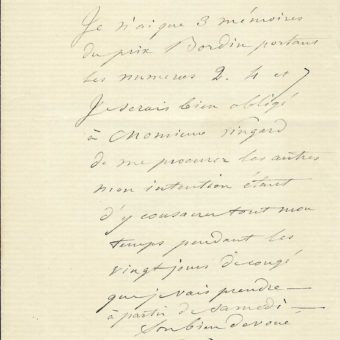 Je n'ai que 3 mémoires
du prix Bordin portant
les numeros 2. 4 et 7
Je serais bien obligé
à Monsieur Pingard
de me procurer les autres
mon intention étant
d'y consacrer tout mon
temps pendant les
vingt jours de congé
que je vais prendre —
à partir de samedi —
Son bien dévoué